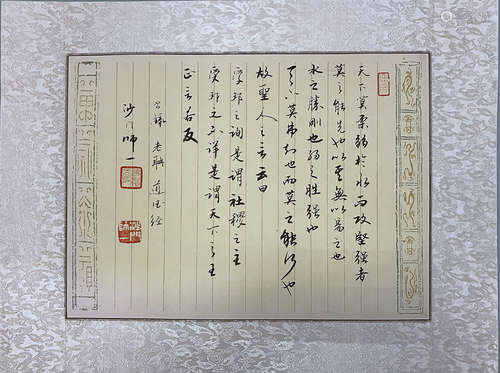 天下莫柔弱於水而攻堅強者
莫之能先也以其無以易之也
水之勝剛也弱之勝強也
天下莫弗知也而莫之能行也
故聖人之言云曰
受邦之詬是謂社稷之主
受邦之不祥是謂天下之王
正言若反
公録 老聃 道德經
沙门师一